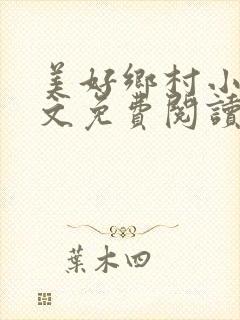 美好鄉村小
文免費閱讀
葉木四